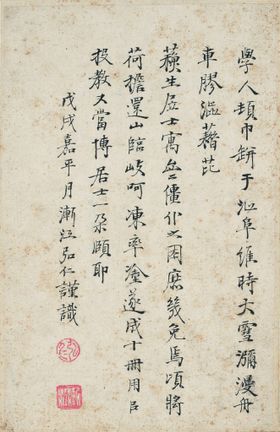 學人頻巾絣于江阜維時大雪瀰漫舟
車膠澁藉芘
蘋生居士寓無僵仆之困庶幾免焉頃將
荷擔還山臨岐呵凍率塗遂成十冊用呂
投教又當博居士一朶頤耶
戊戌嘉平月漸江弘仁謹識